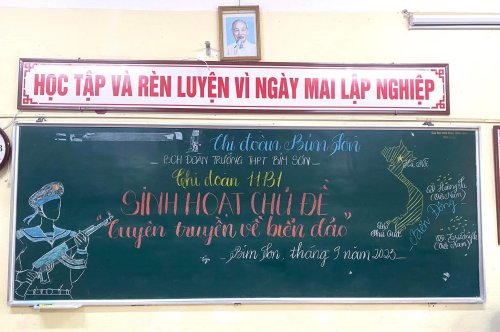 HỌC TẬP VÀ RÈN LUYỆN VÌ NGÀY MAI LẬP NGHIỆP
Chi đoàn Bỉm Sơn
BCH ĐOÀN TRƯỜNG THPT BỈM SƠN
Chi đoàn 11B1
SINH HOẠT CHỦ ĐỀ
"Tuyên truyền về biển đảo"
Bỉm Sơn, tháng 9 năm 2023
Hà Nội
QĐ Hoàng Sa
(Đà Nẵng)
Biển Đông
Đảo
Phú Quốc
QĐ Trường Sa